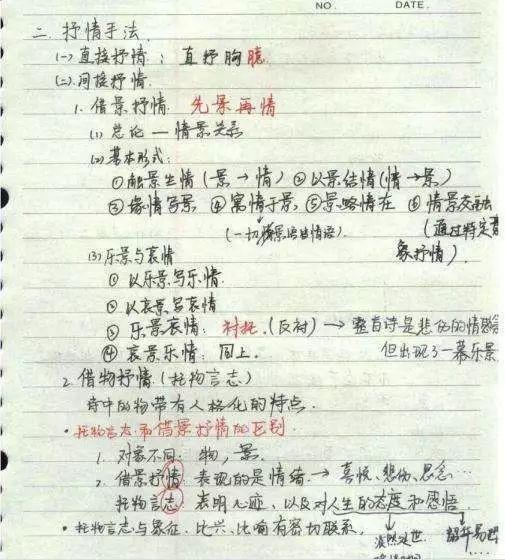 NO.
DATE.
二. 抒情手法.
(一) 直接抒情: 直抒胸臆.
(二) 间接抒情.
1. 借景抒情. 先景再情
(1) 总论 — 情景关系
(2) 基本形式:
①触景生情 (景→情) ②以景结情 (情→景)
③缘情写景 ④寓情于景 ⑤景略情在 ⑥情景交融
(一切景语皆情语) (通过特定意
象抒情).
(3) 乐景与哀情
① 以乐景写乐情.
② 以哀景写哀情
③ 乐景哀情: 衬托. (反衬) → 整首诗是悲伤的情感
④ 哀景乐情: 同上. 但出现了一幕乐景
2. 借物抒情 (托物言志)
诗中的物带有人格化的特点.
• 托物言志和借景抒情的区别
1. 对象不同: 物, 景.
2. 借景抒情: 表现的是情绪. → 喜悦、悲伤、思念…
托物言志: 表明心迹, 以及对人生的态度和感悟
• 托物言志与象征、比兴、比喻有密切联系. 淡然处世. 韶华易逝